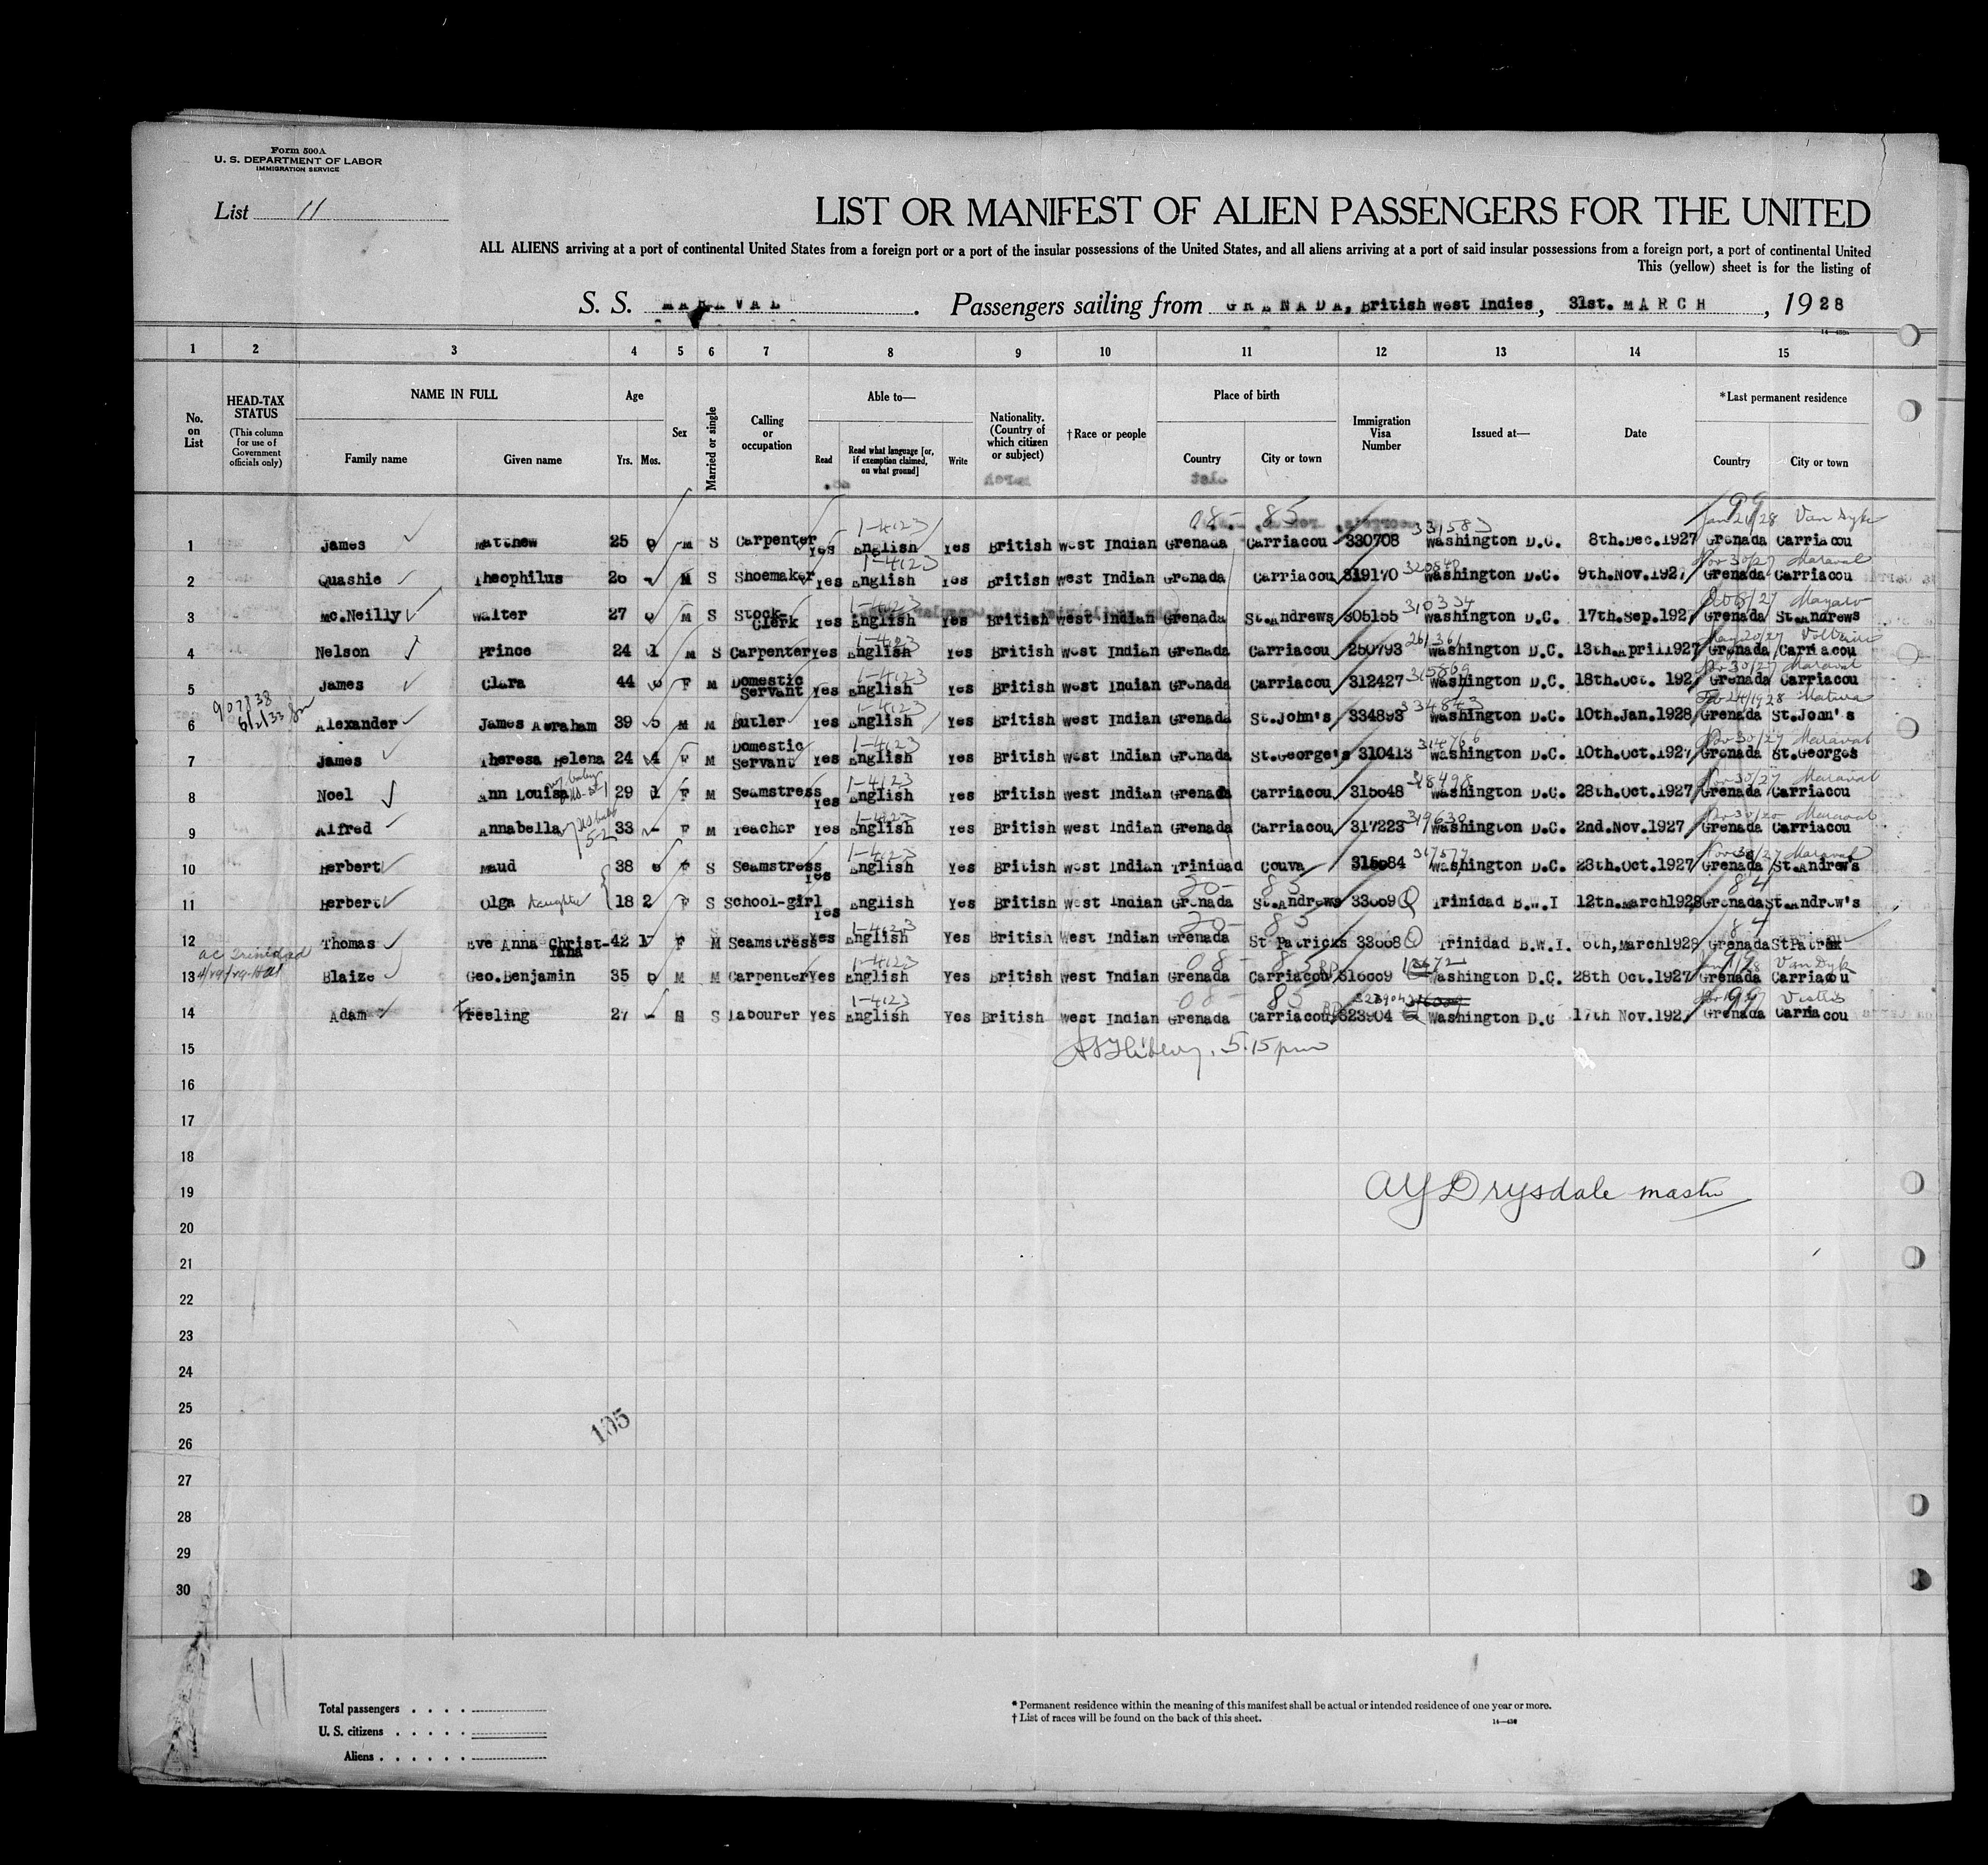 Form 500A
U. S. DEPARTMENT OF LABOR
IMMIGRATION SERVICE
List 11
LIST OR MANIFEST OF ALIEN PASSENGERS FOR THE UNITED
ALL ALIENS arriving at a port of continental United States from a foreign port or a port of the insular possessions of the United States, and all aliens arriving at a port of said insular possessions from a foreign port, a port of continental United
This (yellow) sheet is for the listing of
S. S. MARAVAL. Passengers sailing from GRENADA, British West Indies, 31st. MARCH, 1928
1 2 3 4 5 6 7 8 9 10 11 12 13 14 15
No. on List
HEAD-TAX STATUS (This column for use of Government officials only)
NAME IN FULL
Family name Given name
Age
Yrs. Mos.
Sex
Married or single
Calling or occupation
Able to—
Read Read what language [or, if exemption claimed, on what ground] Write
Nationality. (Country of which citizen or subject)
†Race or people
Place of birth
Country City or town
Immigration Visa Number
Issued at—
Date
*Last permanent residence
Country City or town
08- 85 331583 99 Jan 21/28 Van Dyke
1 James Matthew 25 M S Carpenter Yes English Yes British West Indian Grenada Carriacou 330708 Washington D.C. 8th.Dec.1927 Grenada Carriacou
1-4123 Nov 30/27 Maraval
2 Quashie Theophilus 26 - M S Shoemaker Yes English Yes British West Indian Grenada Carriacou 319170 Washington D.C. 9th.Nov.1927 Grenada Carriacou
1-4123 310334 Mayaro
3 Mc.Neilly Walter 27 M S Stock-Clerk Yes English Yes British West Indian Grenada St.Andrews 305155 Washington D.C. 17th.Sep.192 Grenada St.Andrews
1-4123 261361
4 Nelson Prince 24 1 M S Carpenter Yes English Yes British West Indian Grenada Carriacou 250793 Washington D.C. 13th.April1927 Grenada Carriacou
1-4123 315869 Nov 30/27 Maraval
5 James Clara 44 F M Domestic Servant Yes English Yes British West Indian Grenada Carriacou 312427 Washington D.C. 18th.Oct. 192 Grenada Carriacou
907838 6/2/33 1-4123 334843 Feb 24/1928 Matura
6 Alexander James Abraham 39 5 M M Butler Yes English Yes British West Indian Grenada St.John's 334893 Washington D.C. 10th.Jan.1928 Grenada St.John's
1-4123 314766 Nov 30/27 Maraval
7 James Theresa Helena 24 4 F M Domestic Servant Yes English Yes British West Indian Grenada St.George's 310413 Washington D.C. 10th.Oct.1927 Grenada St.Georges
1-4123 318498 Nov 30/27 Maraval
8 Noel Ann Louisa 29 1 F M Seamstress Yes English Yes British West Indian Grenada Carriacou 315048 Washington D.C. 28th.Oct.1927 Grenada Carriacou
1-4123 319630 Maraval
9 Alfred Annabella 52 33 - F M Teacher Yes English Yes British West Indian Grenada Carriacou 317223 Washington D.C. 2nd.Nov.1927 Grenada Carriacou
1-4123 Nov 30/27 Maraval
10 Herbert Maud 38 F S Seamstress Yes English Yes British West Indian Trinidad Couva Washington D.C. 28th.Oct.1927 Grenada St.Andrew's
20- 85 84
11 Herbert Olga daughter 18 2 F S School-girl Yes English Yes British West Indian Grenada St.Andrews Trinidad B.W.I 12th.March1928 Grenada St.Andrew's
1-4123 20- 85 84
12 Thomas Eve Anna Christ-iana 42 F M Seamstress Yes English Yes British West Indian Grenada St Patricks Trinidad B.W.I. 6th,March1928 Grenada St Patrick
ac Trinidad 1-4123 08- 85 99 Van Dyk
13 Blaize Geo.Benjamin 35 M M Carpenter Yes English Yes British West Indian Grenada Carriacou Washington D.C. 28th Oct.1927 Grenada Carriacou
1-4123 08- 85 323904 99 Vestris
14 Adam Freeling 27 - M S Labourer Yes English Yes British West Indian Grenada Carriacou 323904 Washington D.C 17th Nov.192 Grenada Carriacou
15 5.15 pm
16
17
18
19 AY Drysdale master
20
21
22
23
24
25
105
26
27
28
29
30
11
Total passengers
U. S. citizens
Aliens
* Permanent residence within the meaning of this manifest shall be actual or intended residence of one year or more.
† List of races will be found on the back of this sheet.